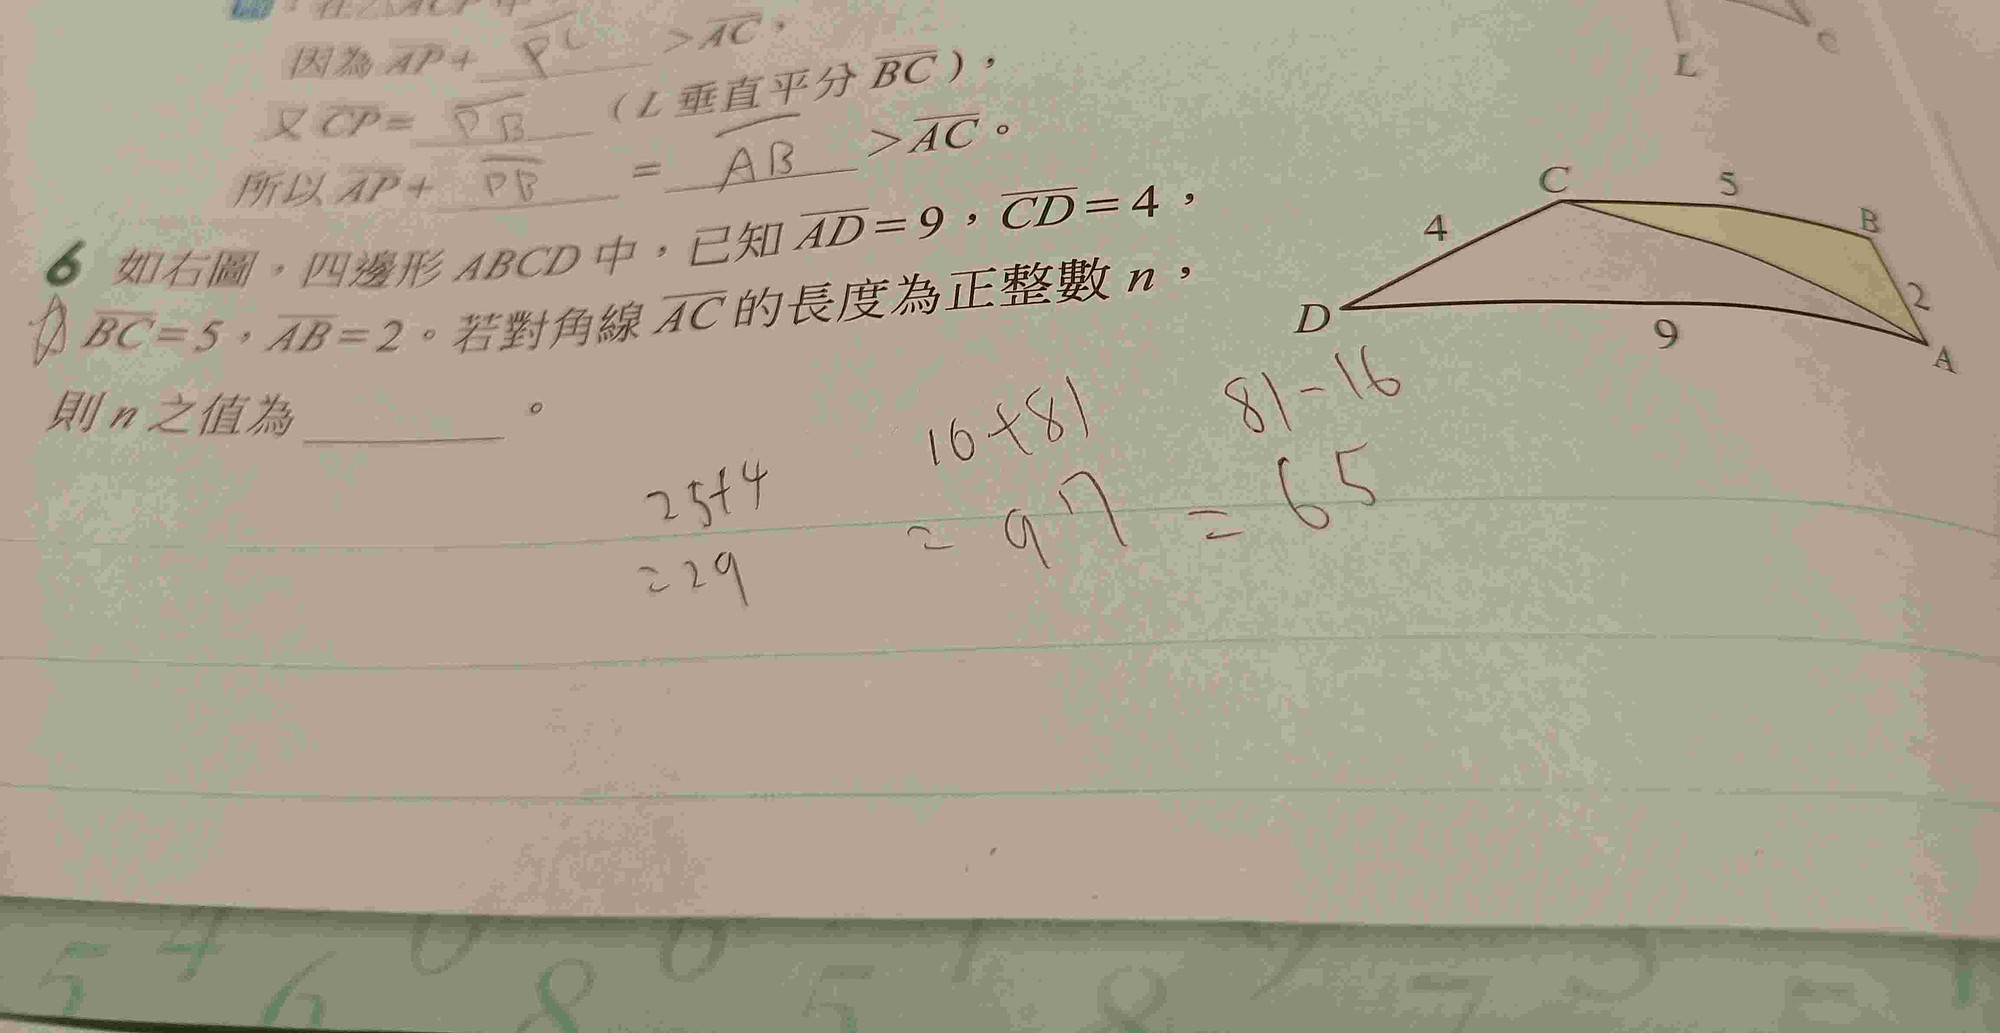 因為 AP + PC > AC，
又 CP = PB （L 垂直平分 BC），
所以 AP + PB = AB > AC。
L
6 如右圖，四邊形 ABCD 中，已知 AD = 9，CD = 4，
BC = 5，AB = 2。若對角線 AC 的長度為正整數 n，
則 n 之值為 ______ 。
C 5 B
4 2
D 9 A
25+4
=29
16+81
=97
81-16
=65